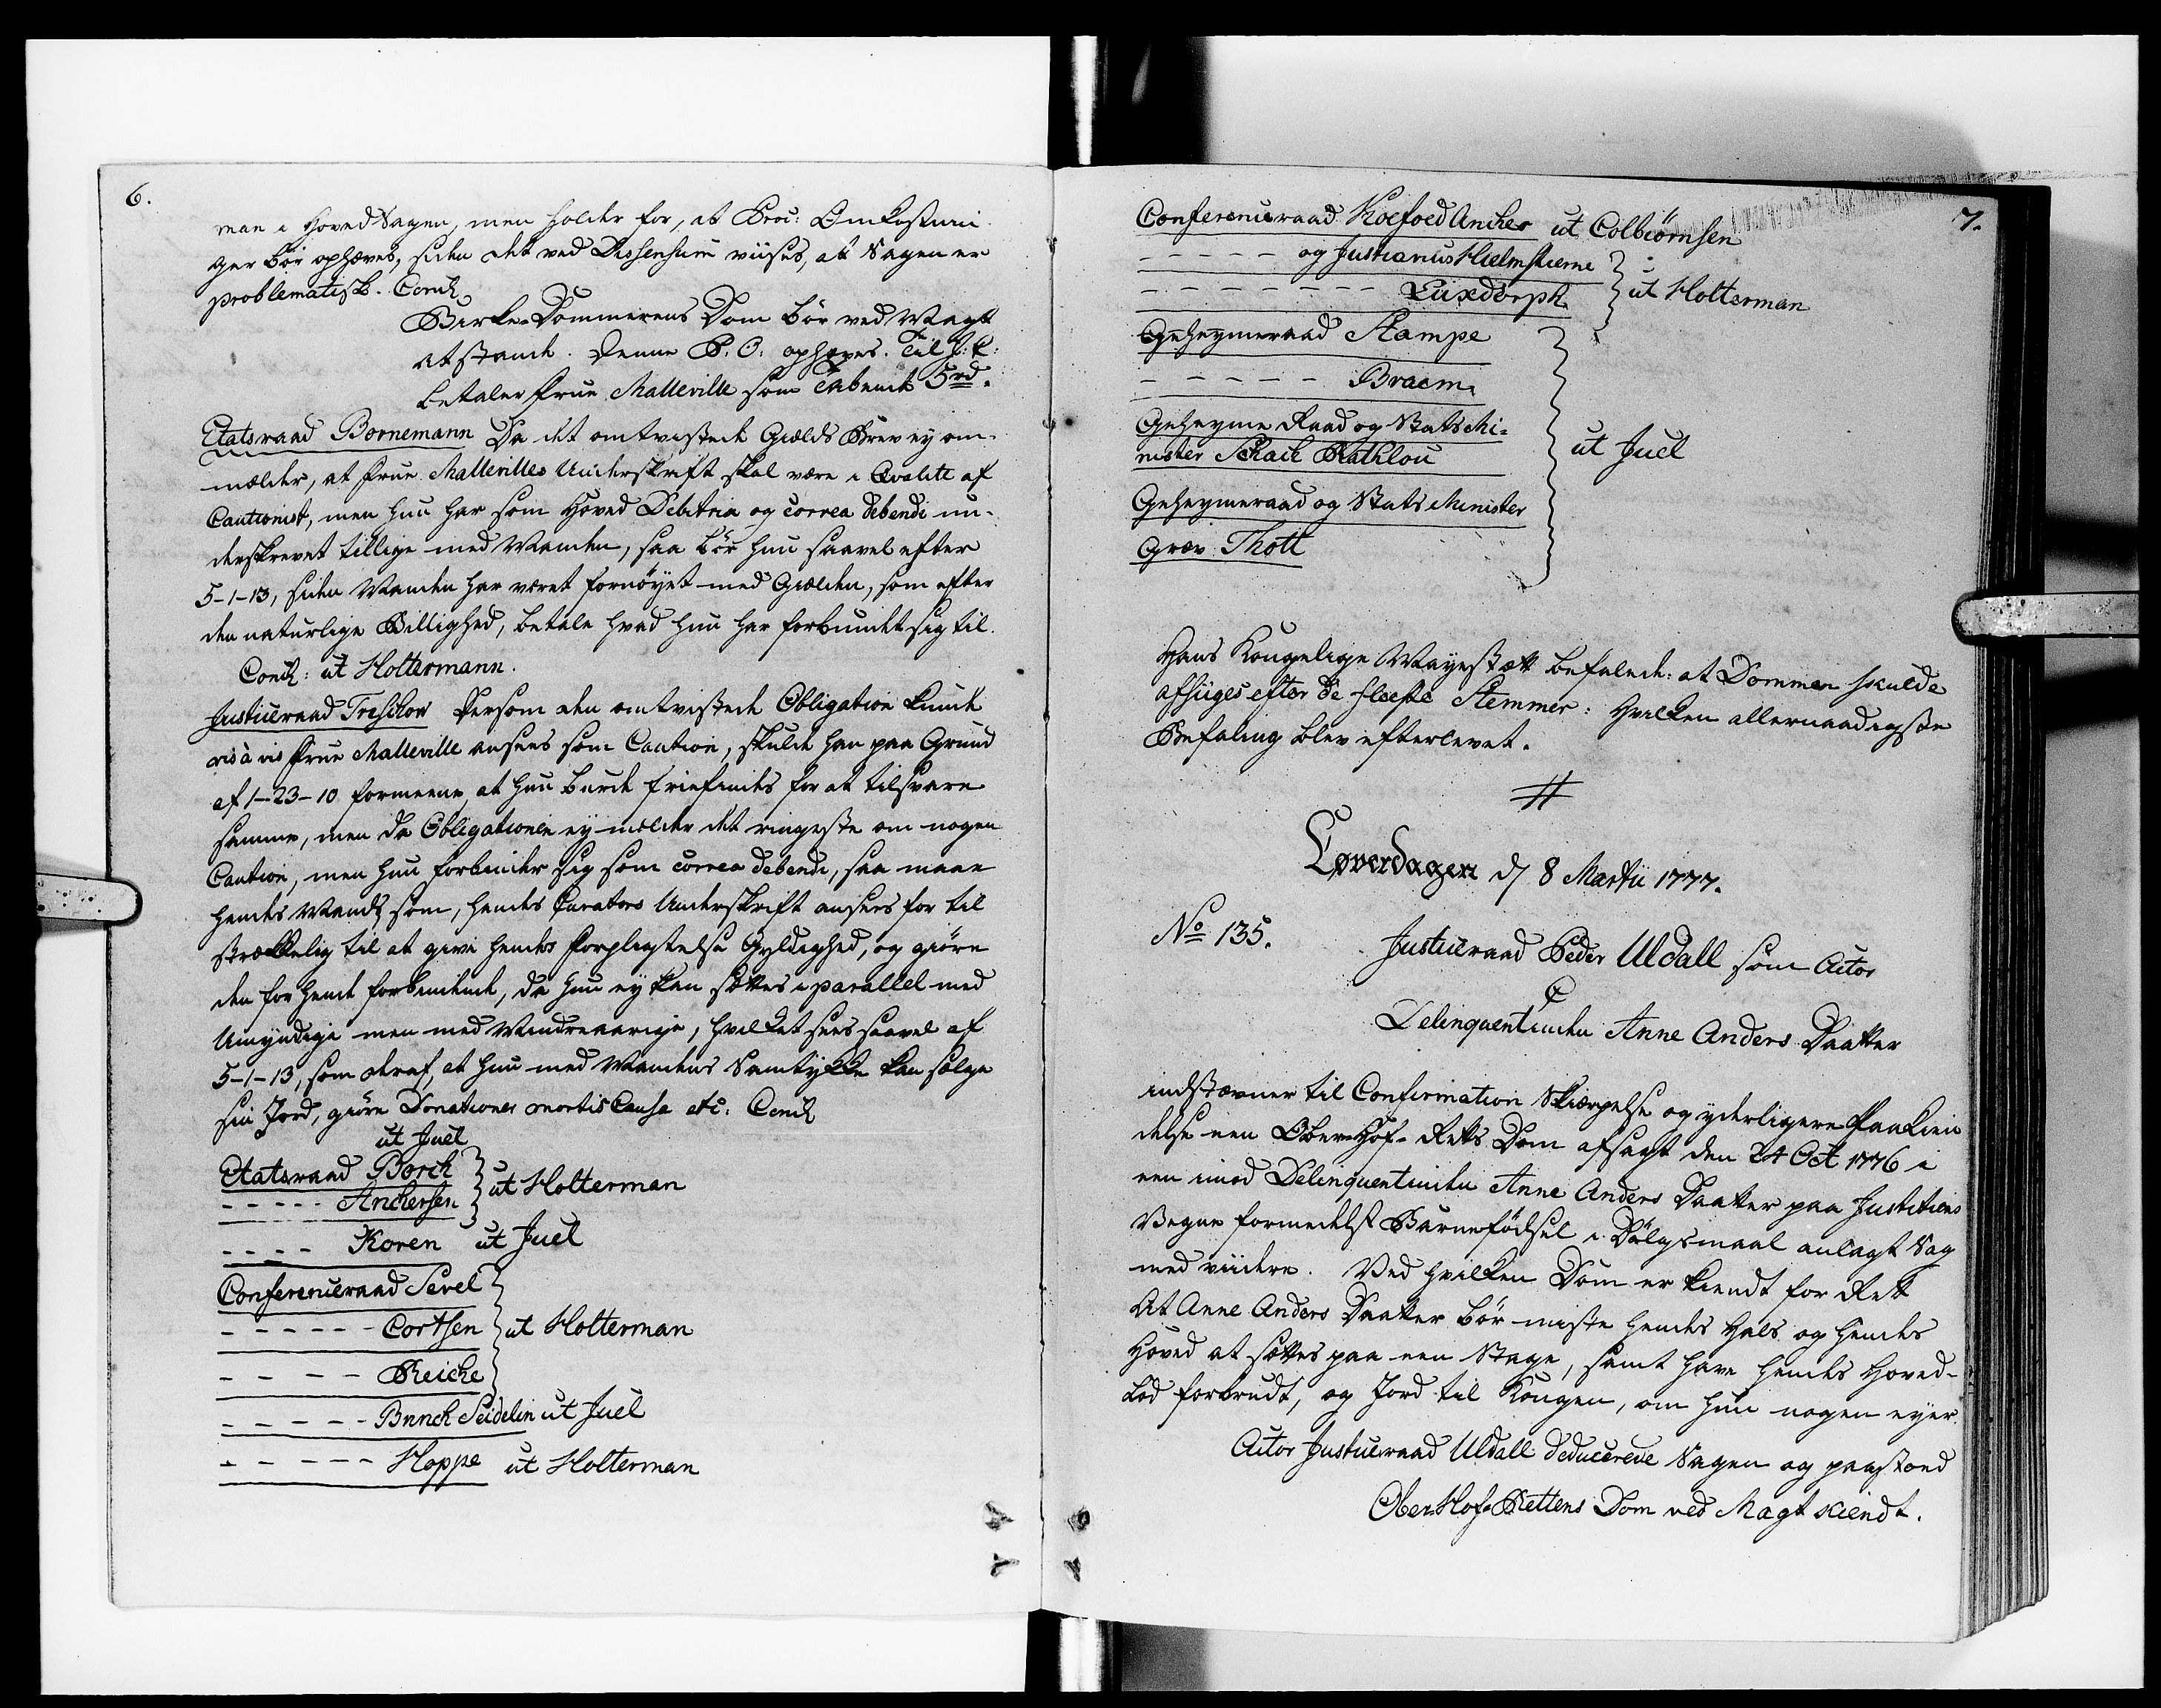 6.
man i Hoved Sagen, men holder for, at Proc: Omkostnin-
ger bör ophæves, siden det ved Dissensum viises, at Sagen er
problematisk. Concl
Birke-Dommerens Dom bör ved Magt
at stande. Denne P. O: ophæves. Til J: C:
betaler Frue Malleville som Tabende 5 rd.
Etatsraad Bornemann Da det omtvistede Gields Brev ey om-
mælder, at Frue Mallevilles Underskrift skal være i Qvalité af
Cautionist, men hun har som Hoved Debitrix og correa debendi un-
derskrevet tillige med Manden, saa bör hun saavel efter
5-1-13, siden Manden har været fornöyet med Gielden, som efter
den naturlige Billighed, betale hvad hun har forbundet sig til.
Concl: ut Holtermann.
Justiceraad Treschow Dersom den omtvistede Obligation kunde
vis à vis Frue Malleville ansees som Caution, skulde han paa Grund
af 1-23-10 formeene, at hun burde friefindes for at tilsvare
samme, men da Obligationen ey melder det ringeste om nogen
Caution, men hun forbinder sig som correa debendi, saa maae
hendes Mands som, hendes Curators Underskrift ansees for til
strækkelig til at give hendes Forpligtelse Gyldighed, og giöre
den for hende forbindende, da hun ey kan sættes i parallel med
Umyndige men med Mindreaarige, hvilket sees saavel af
5-1-13, som deraf, at hun med Mandens Samtykke kan sælge
sin Jord, giöre Donationes mortis Causa etc: Concl
ut Juel
Etatsraad Borch
- - - - - Anchersen } ut Holterman
- - - - Koren ut Juel
Conferenceraad Sevel
- - - - - - Cortsen } ut Holterman
- - - - Reiche
- - - - - Brach Seidelin ut Juel
- - - - - Hoppe ut Holterman
7.
Conferenceraad Koefoed Ancher ut Colbiörnsen
- - - - - og Justiarius Hielmstierne
- - - - - - - Luxdorph } ut Holterman
Geheymeraad Stampe
- - - - - Braem
Geheyme Raad og Stats Mi-
nister Schack Rathlou } ut Juel
Geheymeraad og Stats Minister
Grev Thott
Hans Kongelige Mayestæt befalede: at Dommen skulde
afsiiges efter de fleeste Stemmer: Hvilken allernaadigste
Befaling blev efterlevet.
Löverdagen d 8 Martii 1777.
No 135.
Justiceraad Peder Uldall som Actor
C
Delinquentinden Anne Anders Daatter
indstævner til Confirmation Skiærpelse og yderligere Paakien
delse een Ober-Hof-Rets Dom afsagt den 24 Oct 1776 i
een imod Delinquentinden Anne Anders Daatter paa Justitiens
Vegne formedelst Barnefödsel i Dölgsmaal anlagt Sag
med viidere. Ved hvilken Dom er kiendt for Ret
At Anne Anders Daatter bör miste hendes Hals og hendes
Hoved at sættes paa een Stage, samt have hendes Hoved-
lod forbrudt, og Jord til Kongen, om hun nogen eyer.
Actor Justiceraad Uldall deducerede Sagen og paastoed
Ober-Hof-Rettens Dom ved Magt kiendt.